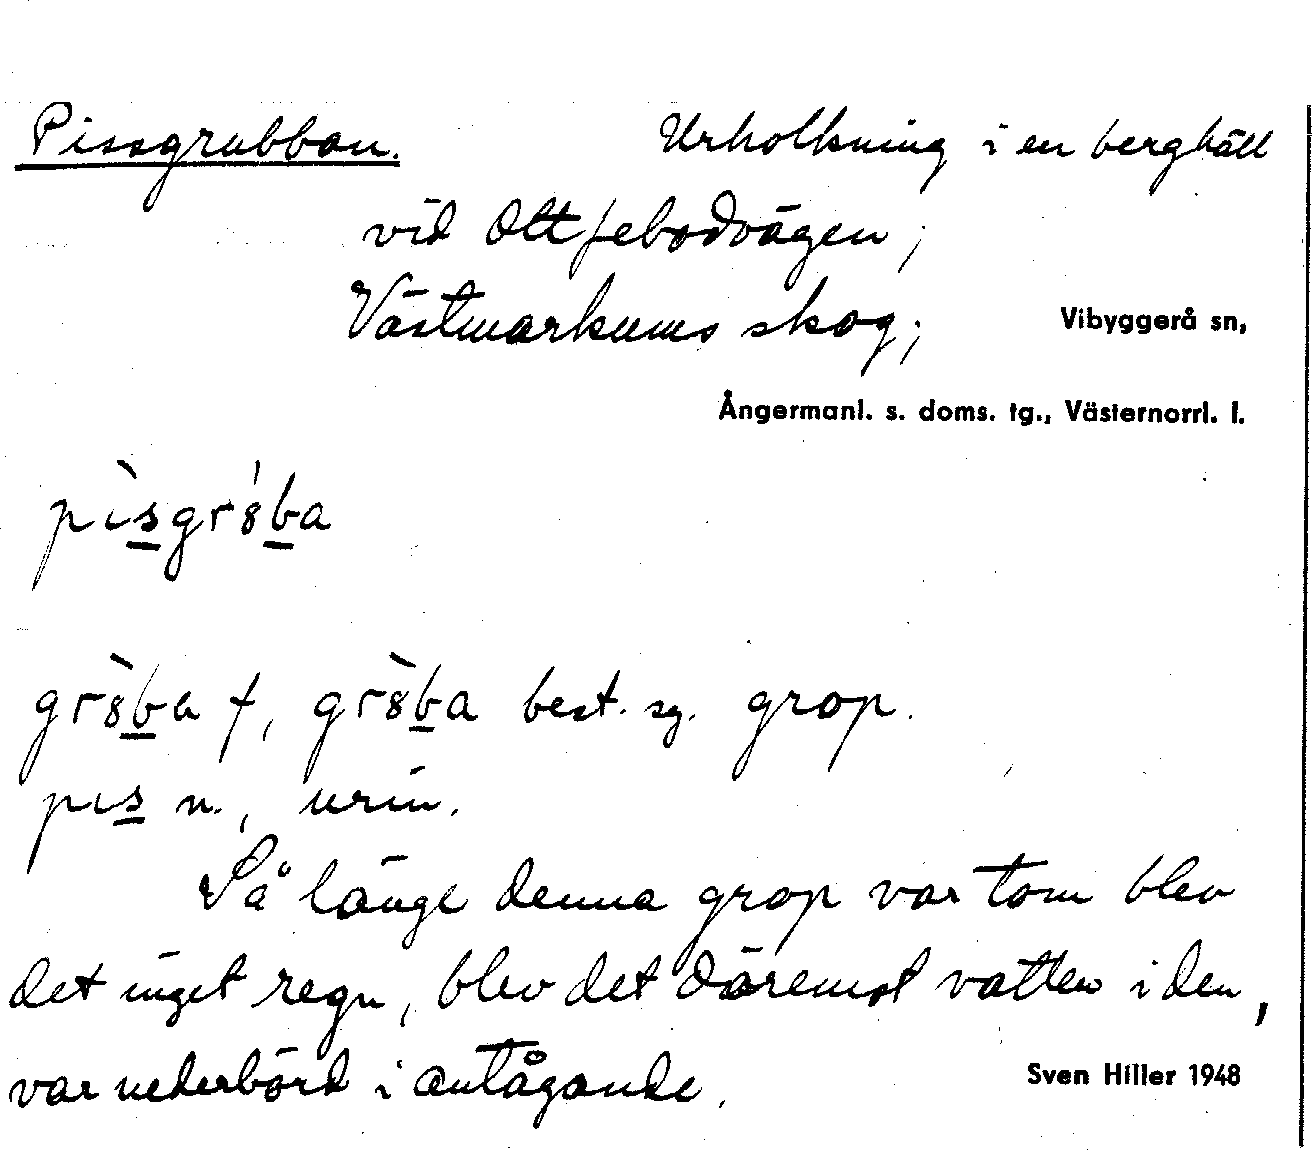 Pissgrubban. Urholkning i en berghäll
vid Ottfebodvägen;
Västmarkums skog; Vibyggerå sn,
Ångermanl. s. doms. tg., Västernorrl. l.
pìsgr8́ba
gr8̀ba f, gr8̀ba best. sg. grop.
pıs n., urin.
Så länge denna grop var tom blev
det inget regn, blev det däremot vatten i den,
var nederbörd i antågande. Sven Hiller 1948